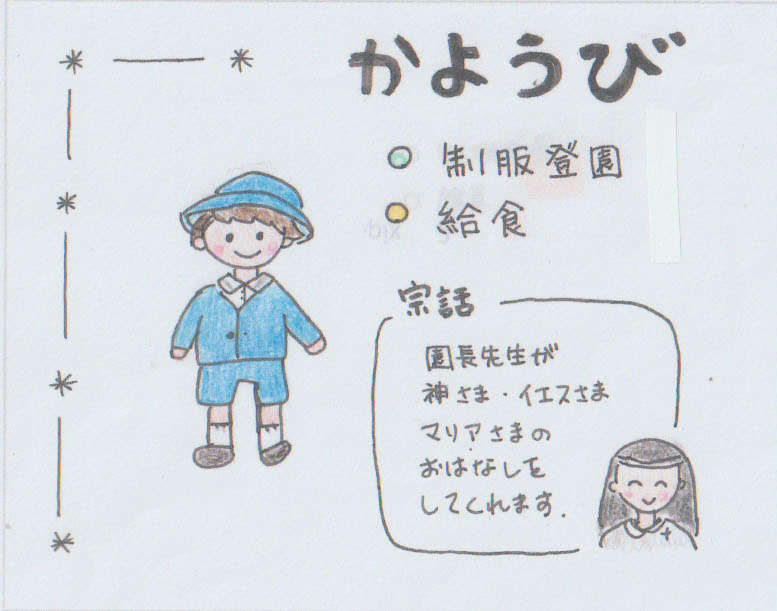 かようび
制服登園
給食
宗話
園長先生が
神さま・イエスさま
マリアさまの
おはなしを
してくれます.